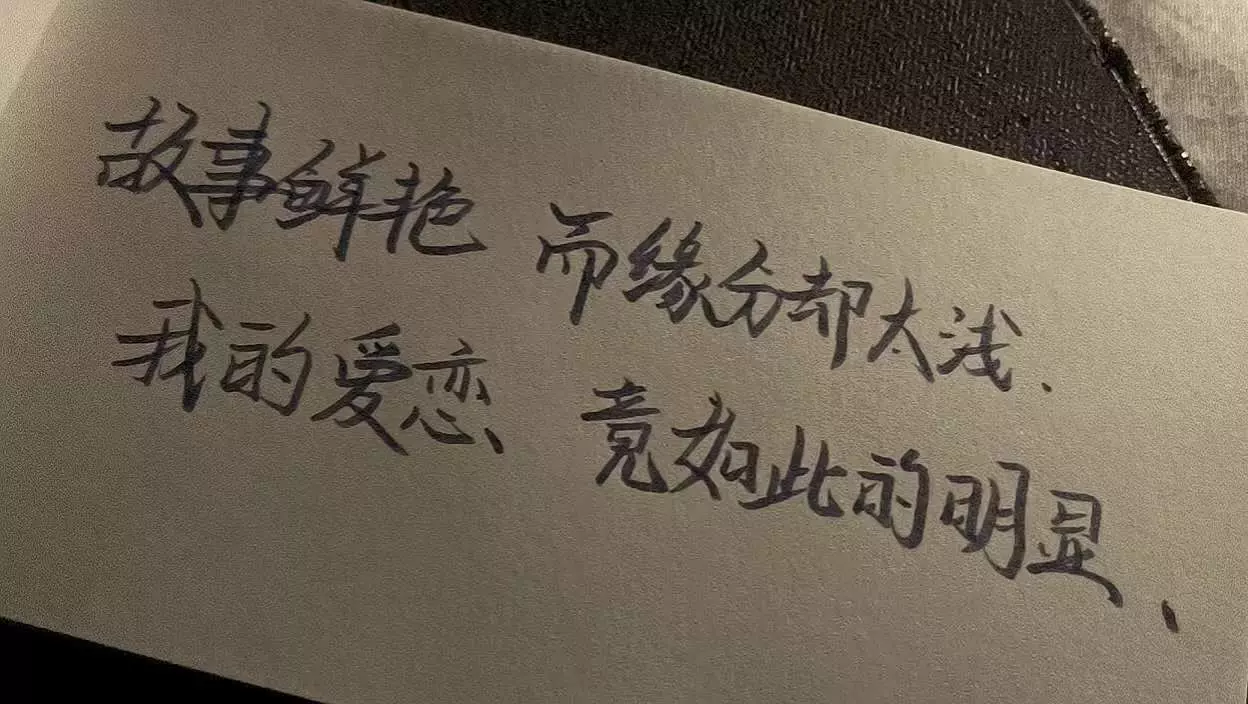 故事鲜艳 而缘分却太浅、
我的爱恋、竟如此的明显、